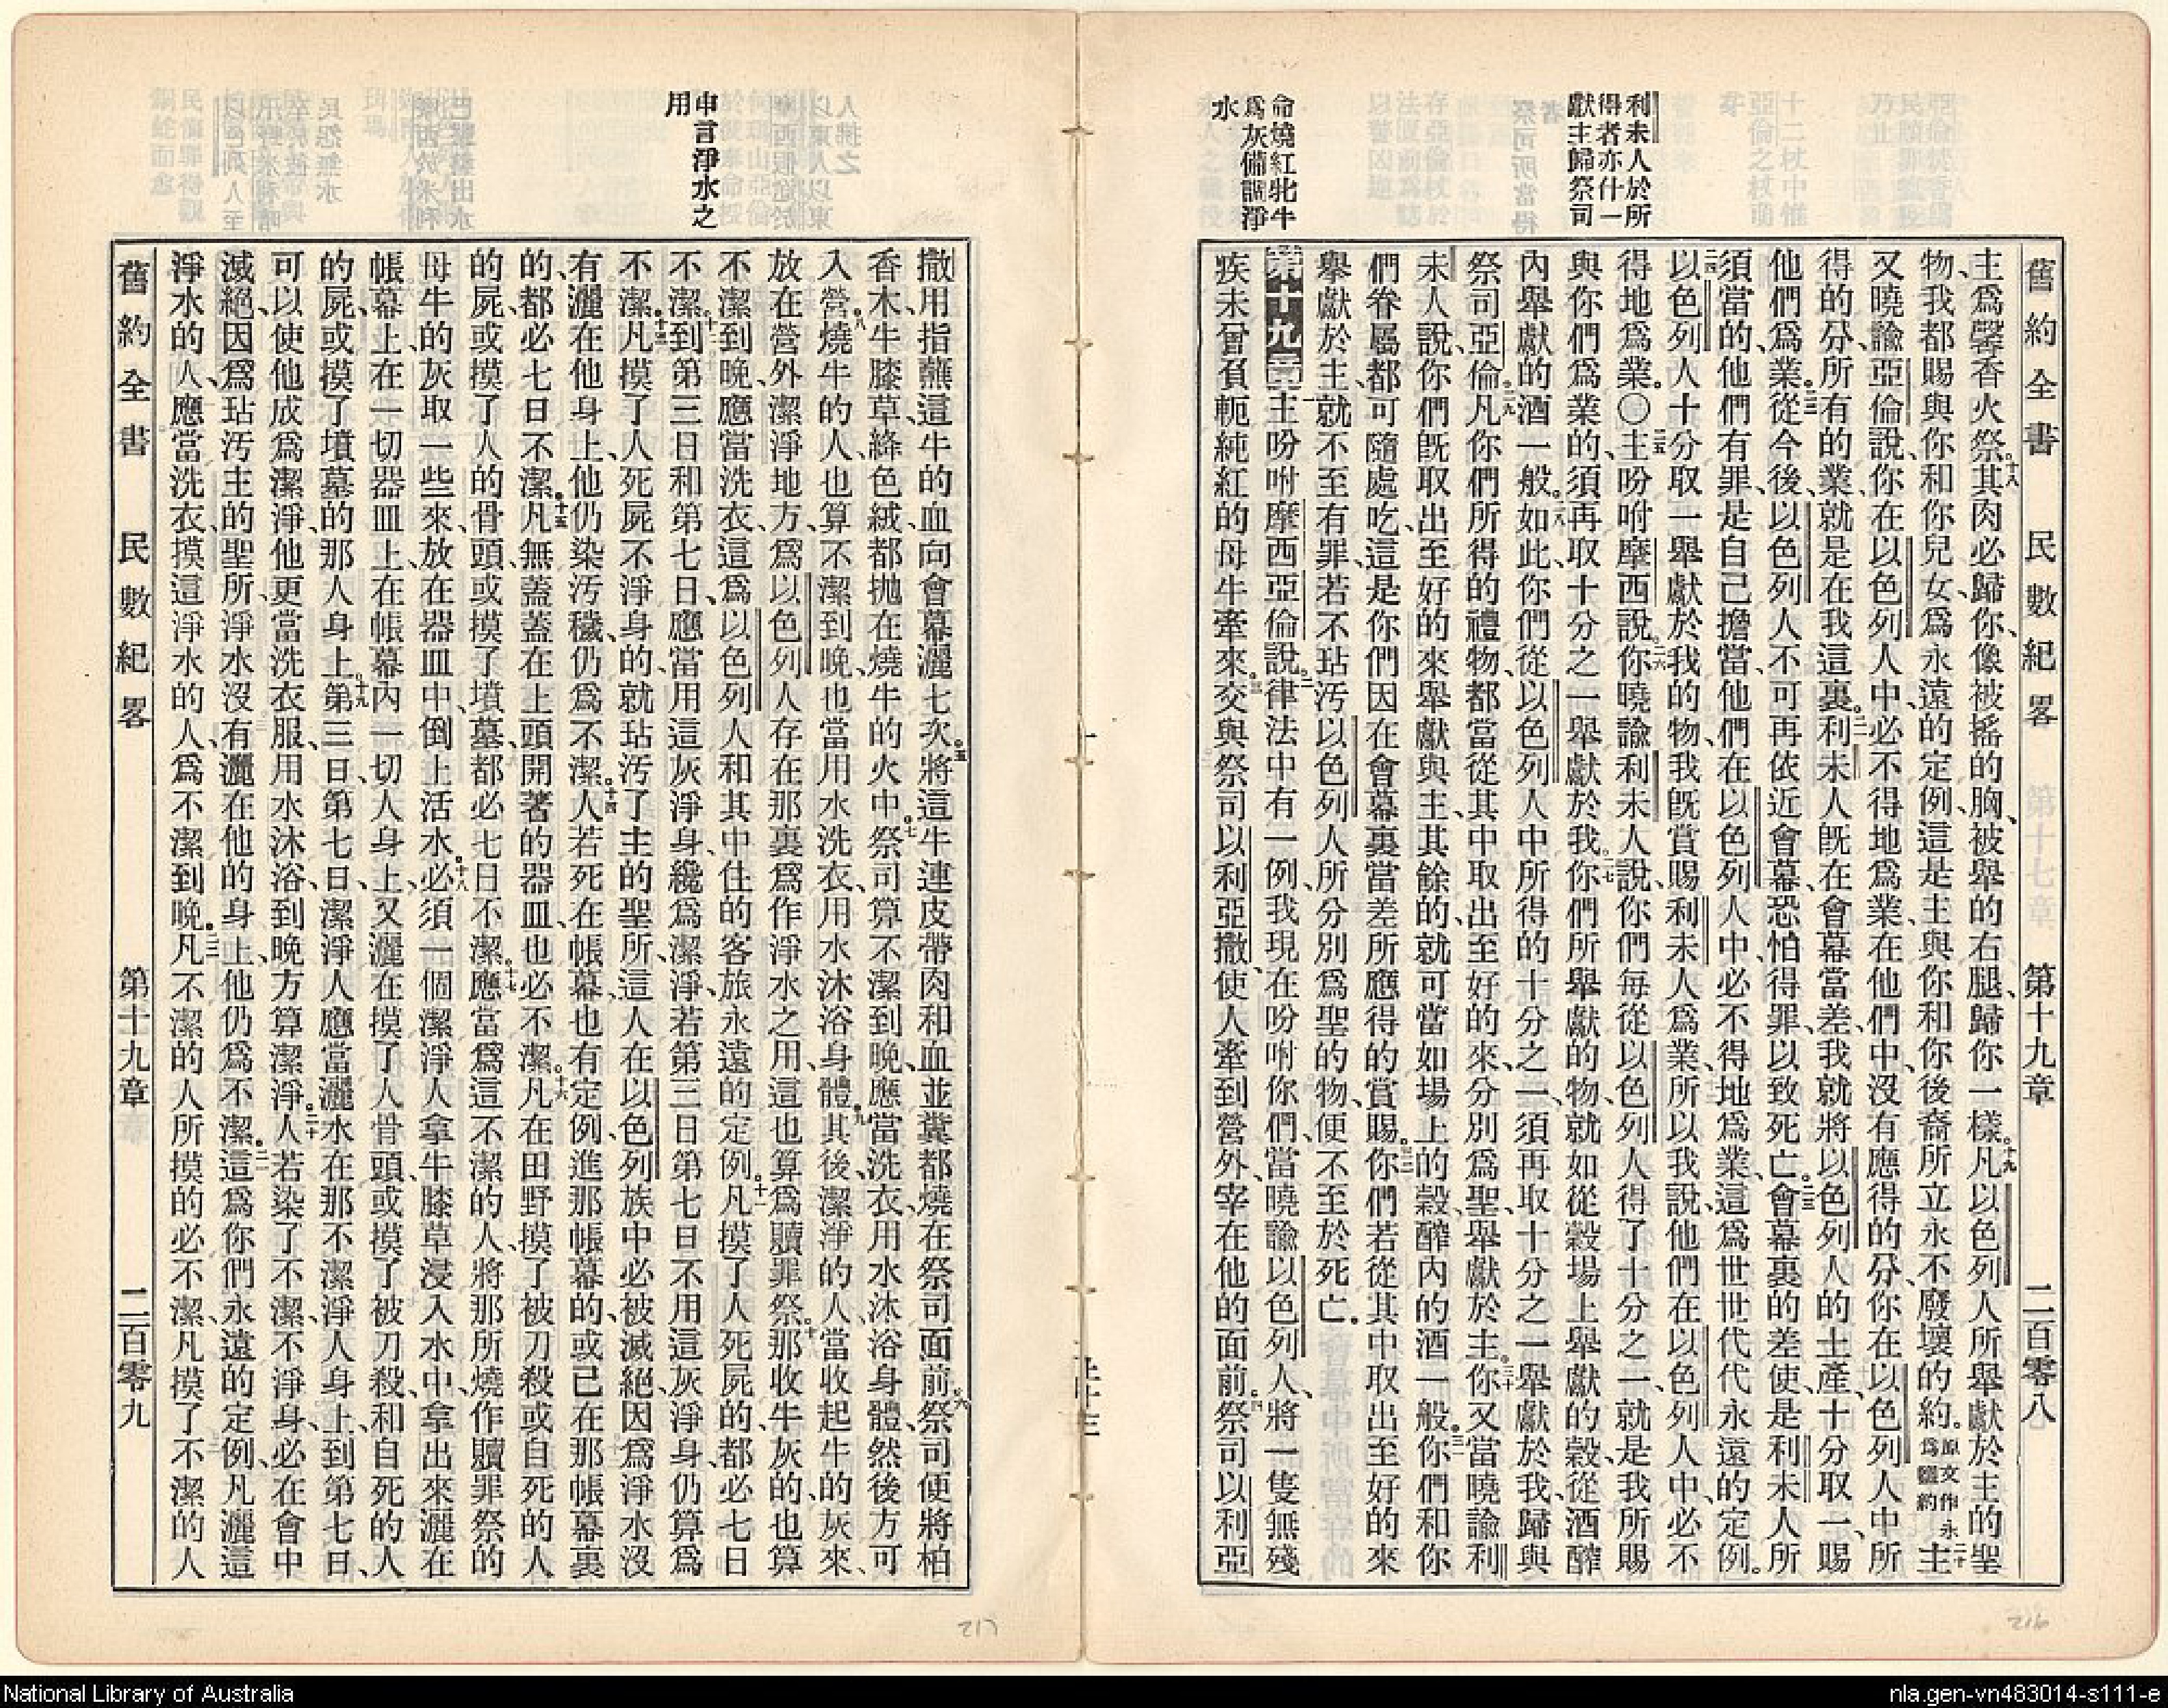 舊約全書 民數紀畧 第十九章 二百零八
利未人於所
得者亦什一
獻主歸祭司
命燒紅牝牛
爲灰備調淨
水
主爲馨香火祭十八其肉必歸你、像被搖的胸、被舉的右腿、歸你一樣。十九凡以色列人所舉獻於主的聖
物、我都賜與你和你兒女、爲永遠的定例、這是主與你和你後裔所立永不廢壞的約。原文作永爲鹽約二十主
又曉諭亞倫說、你在以色列人中、必不得地爲業、在他們中沒有應得的分、你在以色列人中所
得的分、所有的業、就是在我這裏。二一利未人旣在會幕當差、我就將以色列人的土產、十分取一、賜
他們爲業。二二從今後、以色列人不可再依近會幕、恐怕得罪、以致死亡。二三會幕裏的差使、是利未人所
須當的、他們有罪、是自己擔當、他們在以色列人中、必不得地爲業、這爲世世代代永遠的定例。
二四以色列人十分取一、舉獻於我的物、我旣賞賜利未人爲業、所以我說他們在以色列人中必不
得地爲業。〇二五主吩咐摩西說、二六你曉諭利未人說、你們每從以色列人得了十分之一、就是我所賜
與你們爲業的、須再取十分之一舉獻於我。二七你們所舉獻的物、就如從穀場上舉獻的穀、從酒醡
內舉獻的酒一般。二八如此、你們從以色列人中所得的十分之一、須再取十分之一、舉獻於我、歸與
祭司亞倫。二九凡你們所得的禮物、都當從其中取出至好的來、分別爲聖、舉獻於主。三十你又當曉諭利
未人說、你們旣取出至好的來舉獻與主、其餘的就可當如場上的穀、醡內的酒一般。三一你們和你
們眷屬、都可隨處吃、這是你們因在會幕裏當差所應得的賞賜。三二你們若從其中取出至好的來
舉獻於主、就不至有罪、若不玷汚以色列人所分別爲聖的物、便不至於死亡。
第十九章 一主吩咐摩西亞倫說、二律法中有一例、我現在吩咐你們、當曉諭以色列人、將一隻無殘
疾未曾負軛純紅的母牛牽來。三交與祭司以利亞撒、使人牽到營外、宰在他的面前。四祭司以利亞
申言淨水之
用
撒用指蘸這牛的血、向會幕灑七次。五將這牛連皮帶肉和血並糞、都燒在祭司面前。六祭司便將柏
香木、牛膝草、絳色絨、都抛在燒牛的火中。七祭司算不潔到晚、應當洗衣、用水沐浴身體、然後方可
入營。八燒牛的人也算不潔到晚、也當用水洗衣、用水沐浴身體。九其後、潔淨的人、當收起牛的灰來、
放在營外潔淨地方、爲以色列人存在那裏、爲作淨水之用、這也算爲贖罪祭。十那收牛灰的也算
不潔到晚、應當洗衣、這爲以色列人和其中住的客旅永遠的定例。十一凡摸了人死屍的、都必七日
不潔。十二到第三日和第七日、應當用這灰淨身、纔爲潔淨、若第三日第七日不用這灰淨身、仍算爲
不潔。十三凡摸了人死屍不淨身的、就玷汚了主的聖所、這人在以色列族中必被滅絕、因爲淨水沒
有灑在他身上、他仍染汚穢、仍爲不潔。十四人若死在帳幕、也有定例、進那帳幕的、或已在那帳幕裏
的、都必七日不潔。十五凡無蓋蓋在上頭開著的器皿、也必不潔。十六凡在田野摸了被刀殺或自死的人
的屍、或摸了人的骨頭、或摸了墳墓、都必七日不潔。十七應當爲這不潔的人、將那所燒作贖罪祭的
母牛的灰取一些來、放在器皿中、倒上活水。十八必須一個潔淨人、拿牛膝草浸入水中、拿出來灑在
帳幕上、在一切器皿上、在帳幕內一切人身上、又灑在摸了人骨頭、或摸了被刀殺、和自死的人
的屍、或摸了墳墓的那人身上。十九第三日、第七日、潔淨人應當灑水在那不潔淨人身上、到第七日、
可以使他成爲潔淨、他更當洗衣服、用水沐浴、到晚方算潔淨。二十人若染了不潔、不淨身、必在會中
滅絕、因爲玷汚主的聖所、淨水沒有灑在他的身上、他仍爲不潔。二一這爲你們永遠的定例、凡灑這
淨水的人、應當洗衣、摸這淨水的人、爲不潔到晚。二二凡不潔的人所摸的必不潔、凡摸了不潔的人
舊約全書 民數紀畧 第十九章 二百零九
216
217
National Library of Australia
nla.gen-vn483014-s111-e